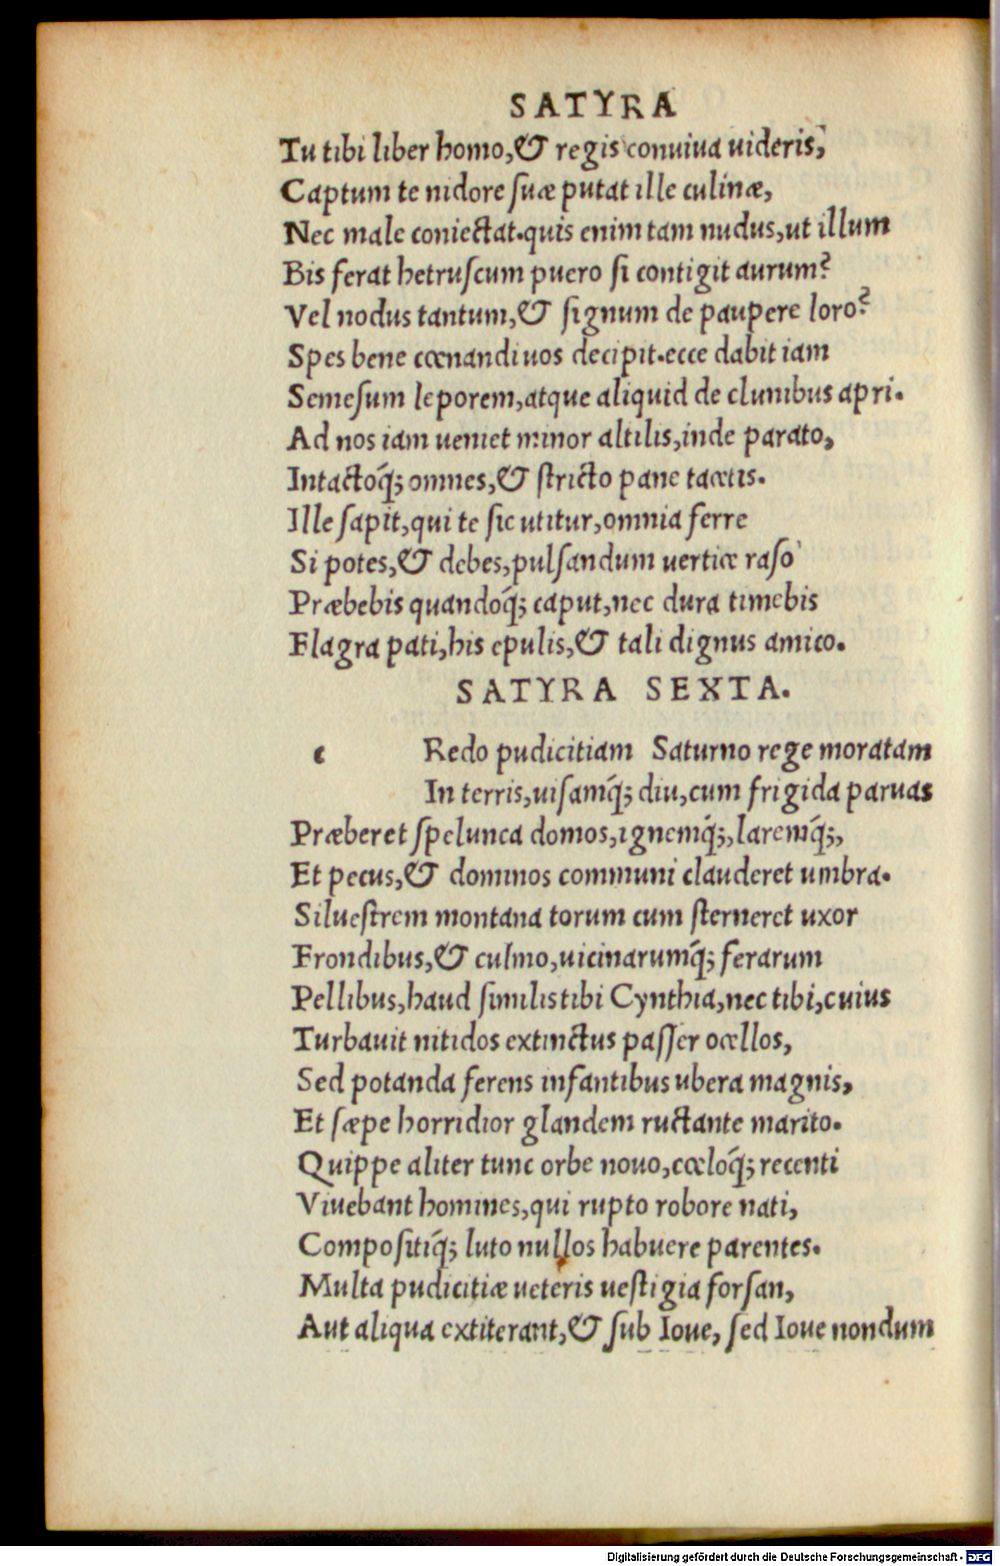 SATYRA
Tu tibi liber homo,& regis conuiua uideris,
Captum te nidore ſuæ putat ille culinæ,
Nec male coniectat.quis enim tam nudus,ut illum
Bis ferat hetruſcum puero ſi contigit aurum?
Vel nodus tantum,& ſignum de paupere loro?
Spes bene cœnandi uos decipit.ecce dabit iam
Semeſum leporem,atque aliquid de clunibus apri.
Ad nos iam ueniet minor altilis,inde parato,
Intactoq́; omnes,& ſtricto pane tacetis.
Ille ſapit,qui te ſic utitur,omnia ferre
Si potes,& debes,pulſandum uertice raſo
Præbebis quandoq́; caput,nec dura timebis
Flagra pati,his epulis,& tali dignus amico.
SATYRA SEXTA.
c Redo pudicitiam Saturno rege moratam
In terris,uiſamq́; diu,cum frigida paruas
Præberet ſpelunca domos,ignemq́;,laremq́;,
Et pecus,& dominos communi clauderet umbra.
Silueſtrem montana torum cum ſterneret uxor
Frondibus,& culmo,uicinarumq́; ferarum
Pellibus,haud ſimilis tibi Cynthia,nec tibi,cuius
Turbauit nitidos extinctus paſſer ocellos,
Sed potanda ferens infantibus ubera magnis,
Et ſæpe horridior glandem ructante marito.
Quippe aliter tunc orbe nouo,cœloq́; recenti
Viuebant homines,qui rupto robore nati,
Compoſitiq́; luto nullos habuere parentes.
Multa pudicitiæ ueteris ueſtigia forſan,
Aut aliqua extiterant,& ſub Ioue, ſed Ioue nondum
Digitalisierung gefördert durch die Deutsche Forschungsgemeinschaft - DFG